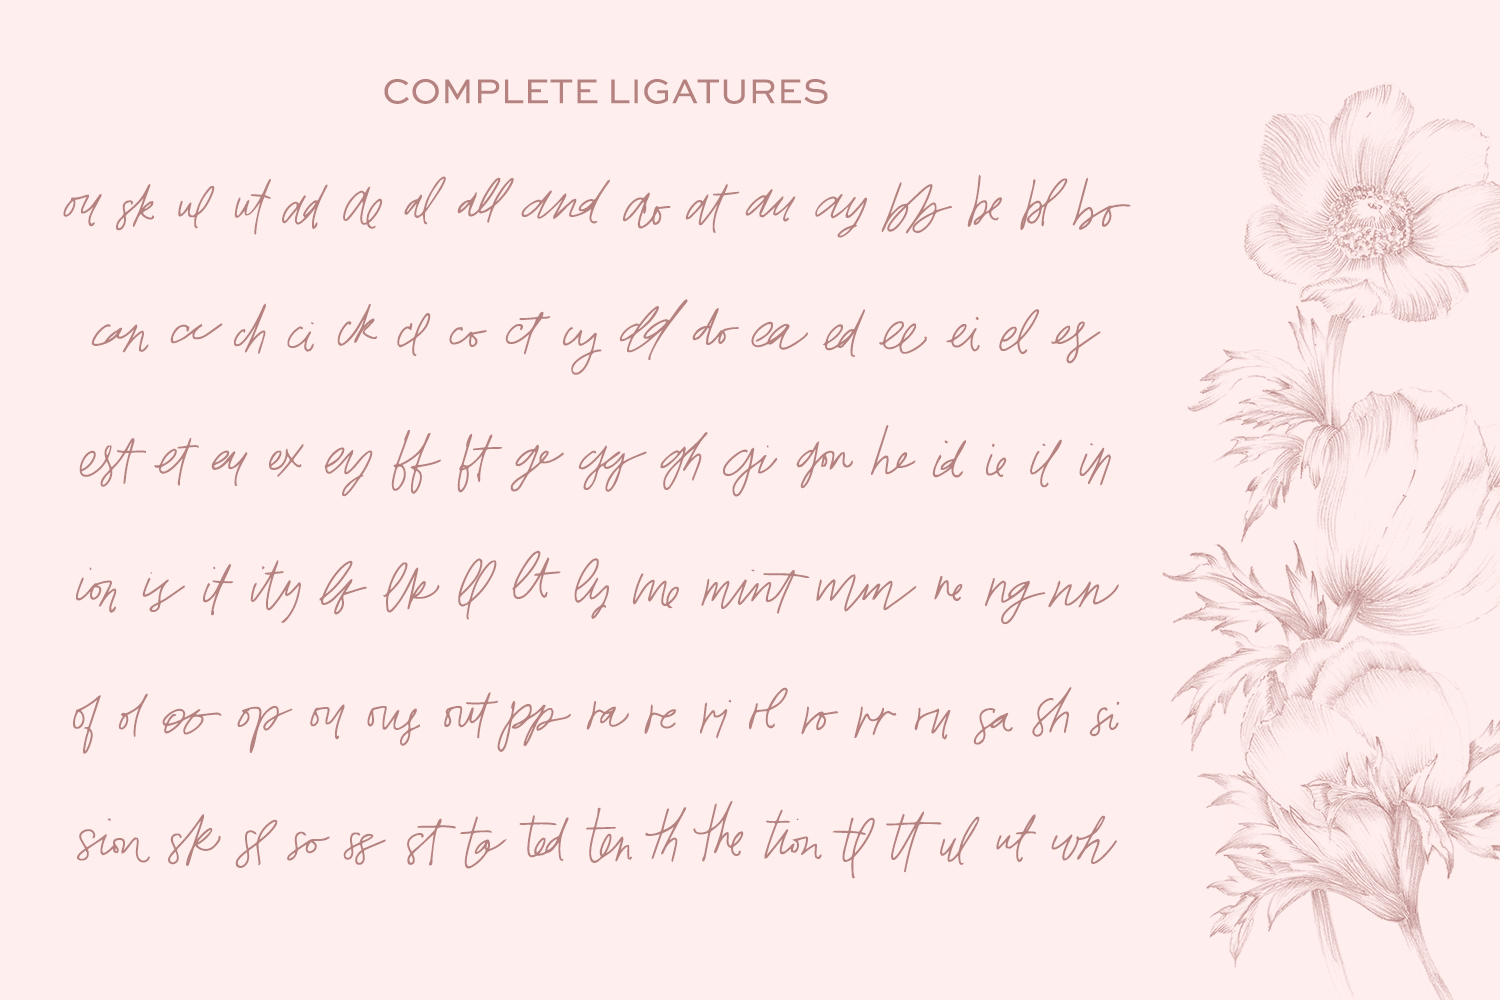 COMPLETE LIGATURES
ou sk ul ut ad de al all and ao at au ay bb be bl bo
can cc ch ci ck cl co ct cy dd do ea ed ee ei el es
est et eu ex ey ff ft ge gg gh gi gon he id ie il in
ion is it ity lf lk ll lt ly me mint mm ne ng nn
of ol oo op ou ous out pp ra re ri rl ro rr ru sa sh si
sion sk sl so ss st ta ted ten th the tion tl tt ul ut wh